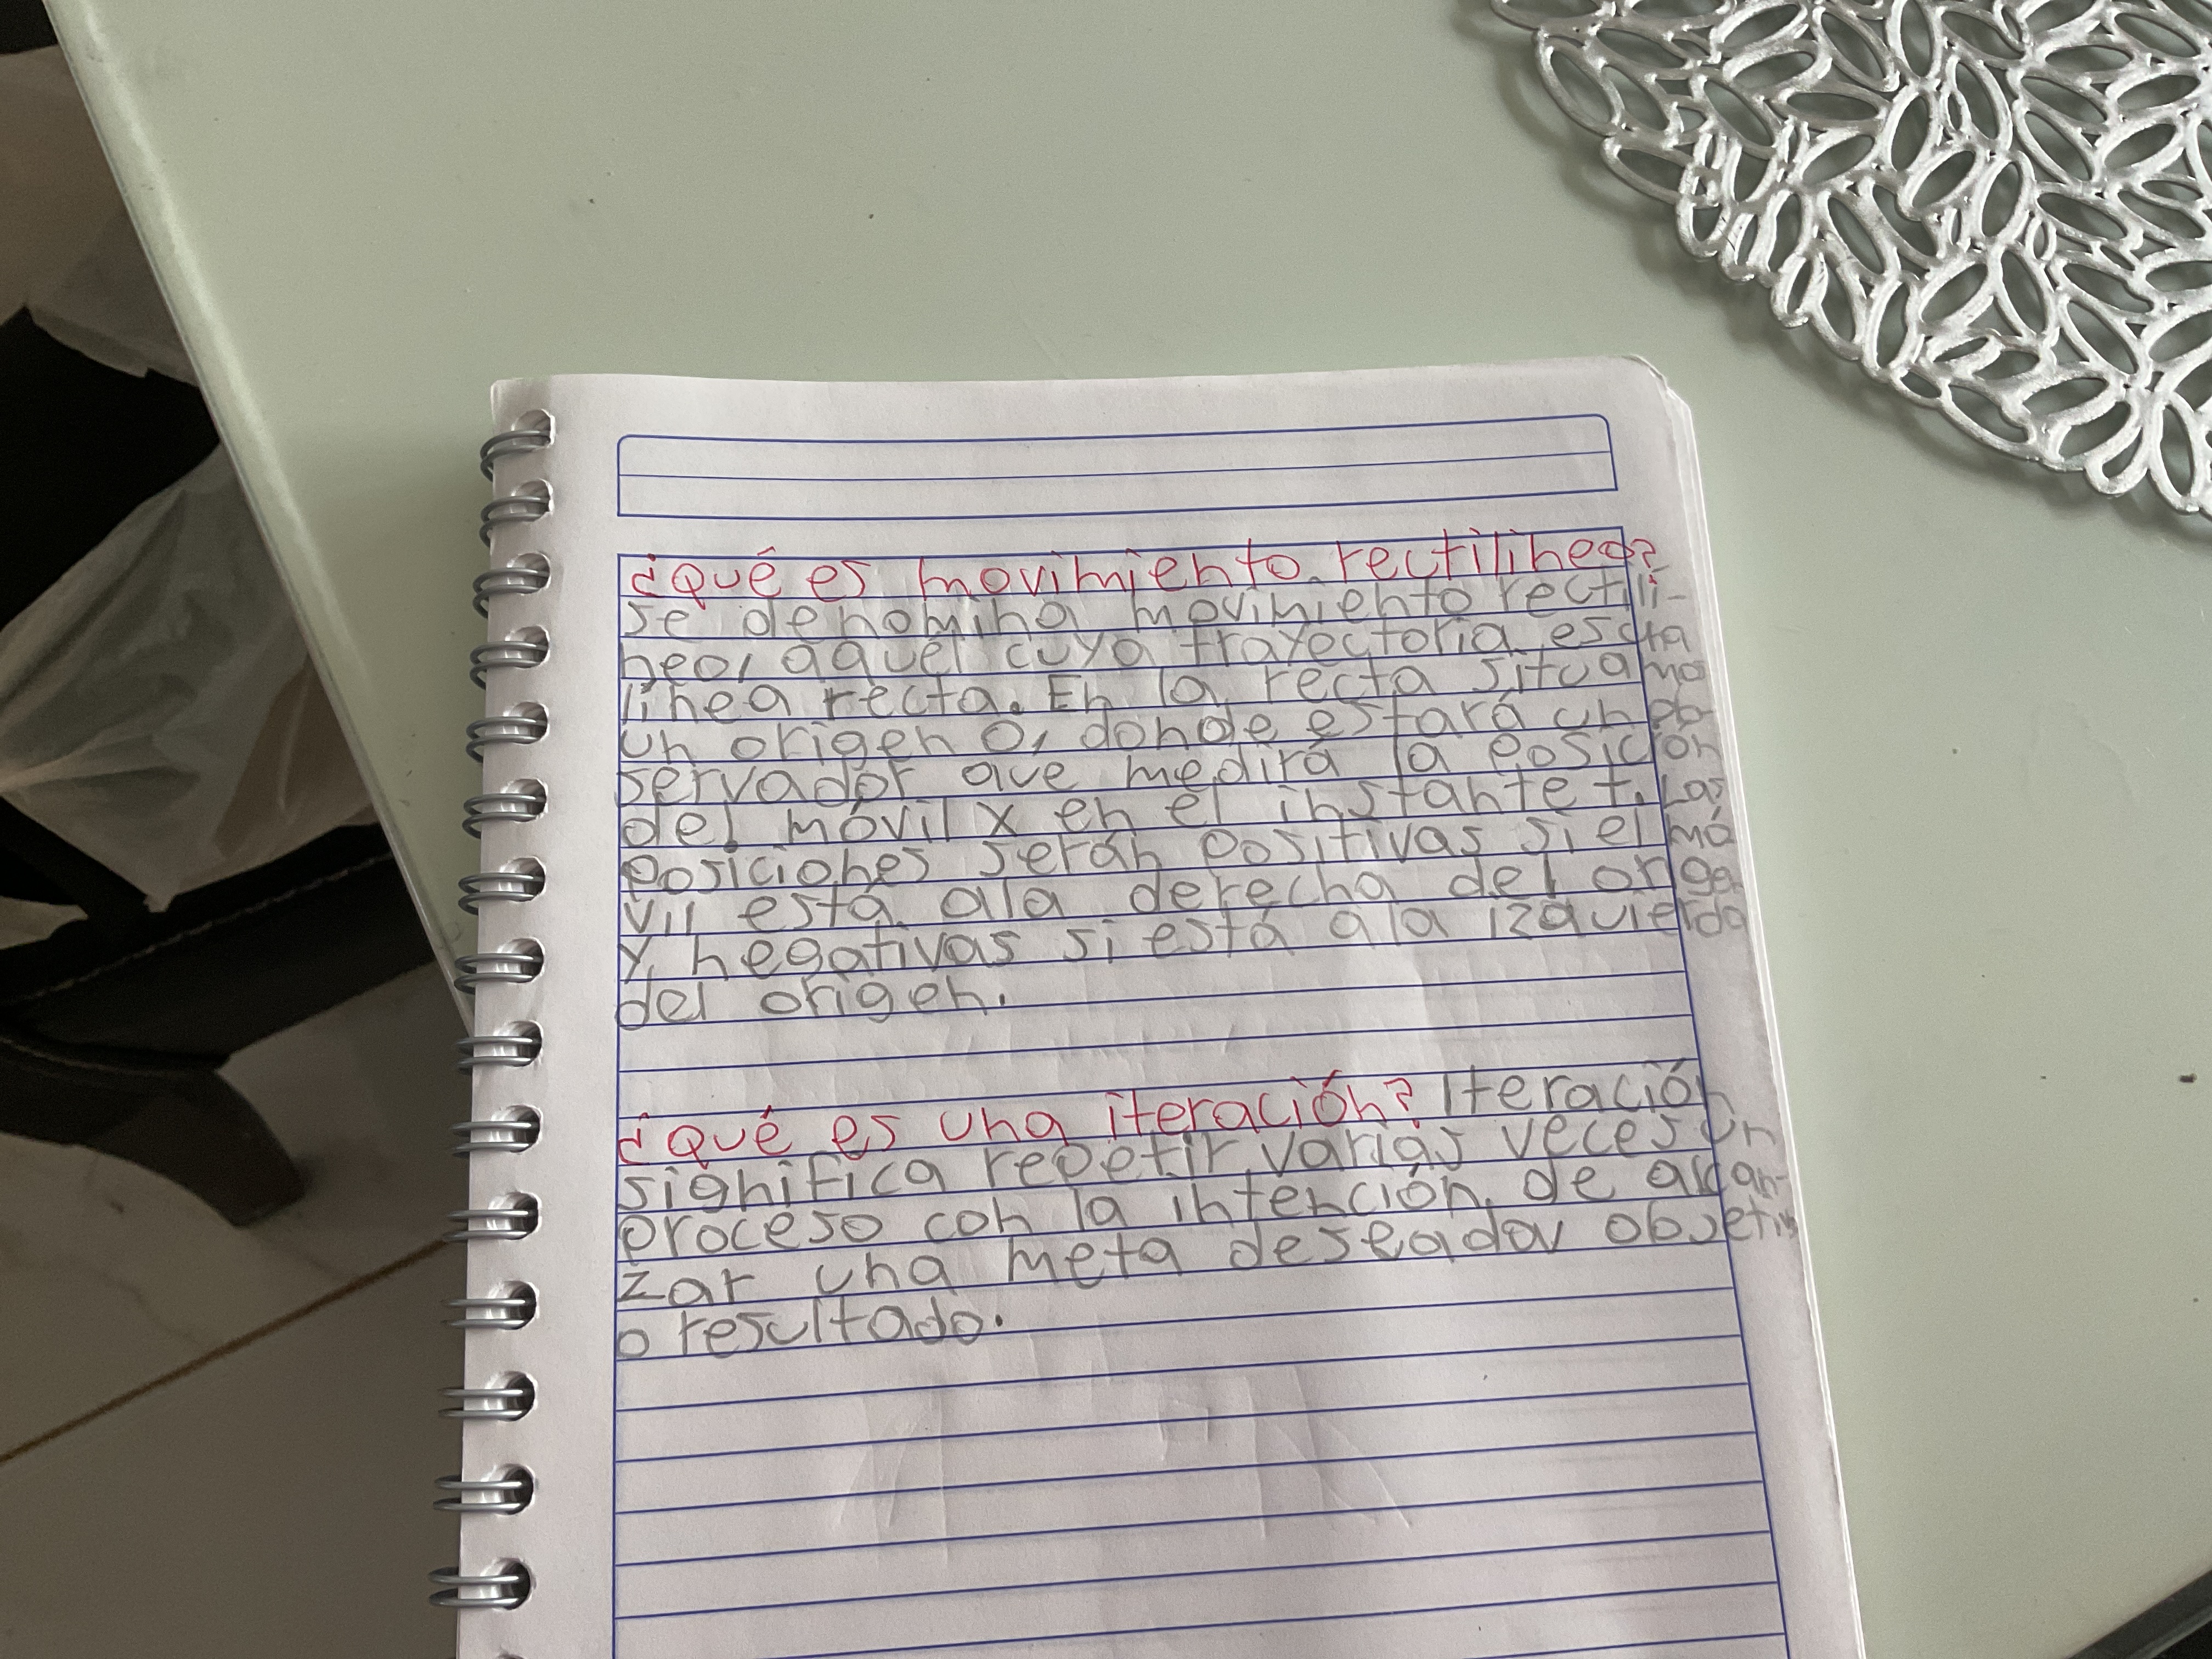 ¿Qué es movimiento rectilineo?
se denomina movimiento rectili-
neo, aquél cuya trayectoria es una
línea recta. En la recta situamos
un origen O, donde estará un ob-
servador que medirá la posición
del móvil x en el instante t. Las
posiciones serán positivas si el mó
vil está ala derecha del origen
y negativas si está ala izquierda
del origen.
¿Qué es una iteración? Iteración
significa repetir varias veces un
proceso con la intención de alcan-
zar una meta deseada, objetivo
o resultado.